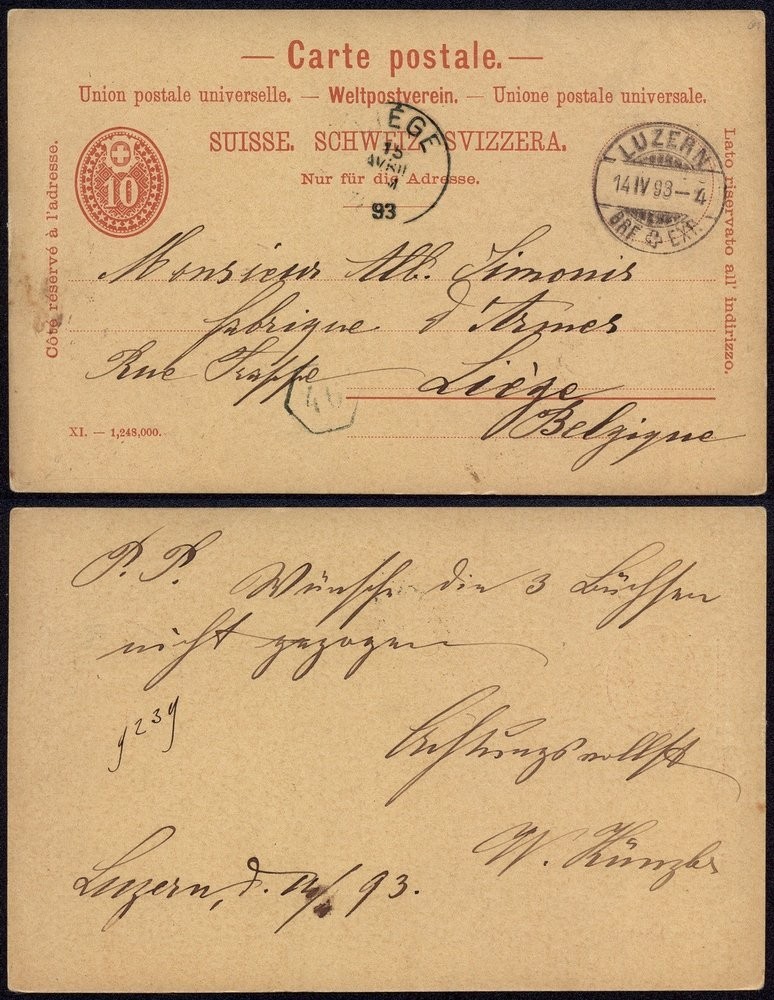 — Carte postale. —
Union postale universelle. — Weltpostverein. — Unione postale universale.
SUISSE. SCHWEIZ. SVIZZERA.
Nur für die Adresse.
Côté réservé à l'adresse.
10
LIÈGE
15
AVRIL
4
93
LUZERN
14 IV 93 — 4
BRF. EXP.
Lato riservato all' indirizzo.
Monsieur Alb. Simonis
fabrique d'Armes
Rue Trappé Liège
Belgique
46
XI. — 1,248,000.
P. P. Wünsche die 3 Büchsen
nicht gezogen
9239
Achtungsvollst
W. Künzler
Luzern, d. 14/4 93.